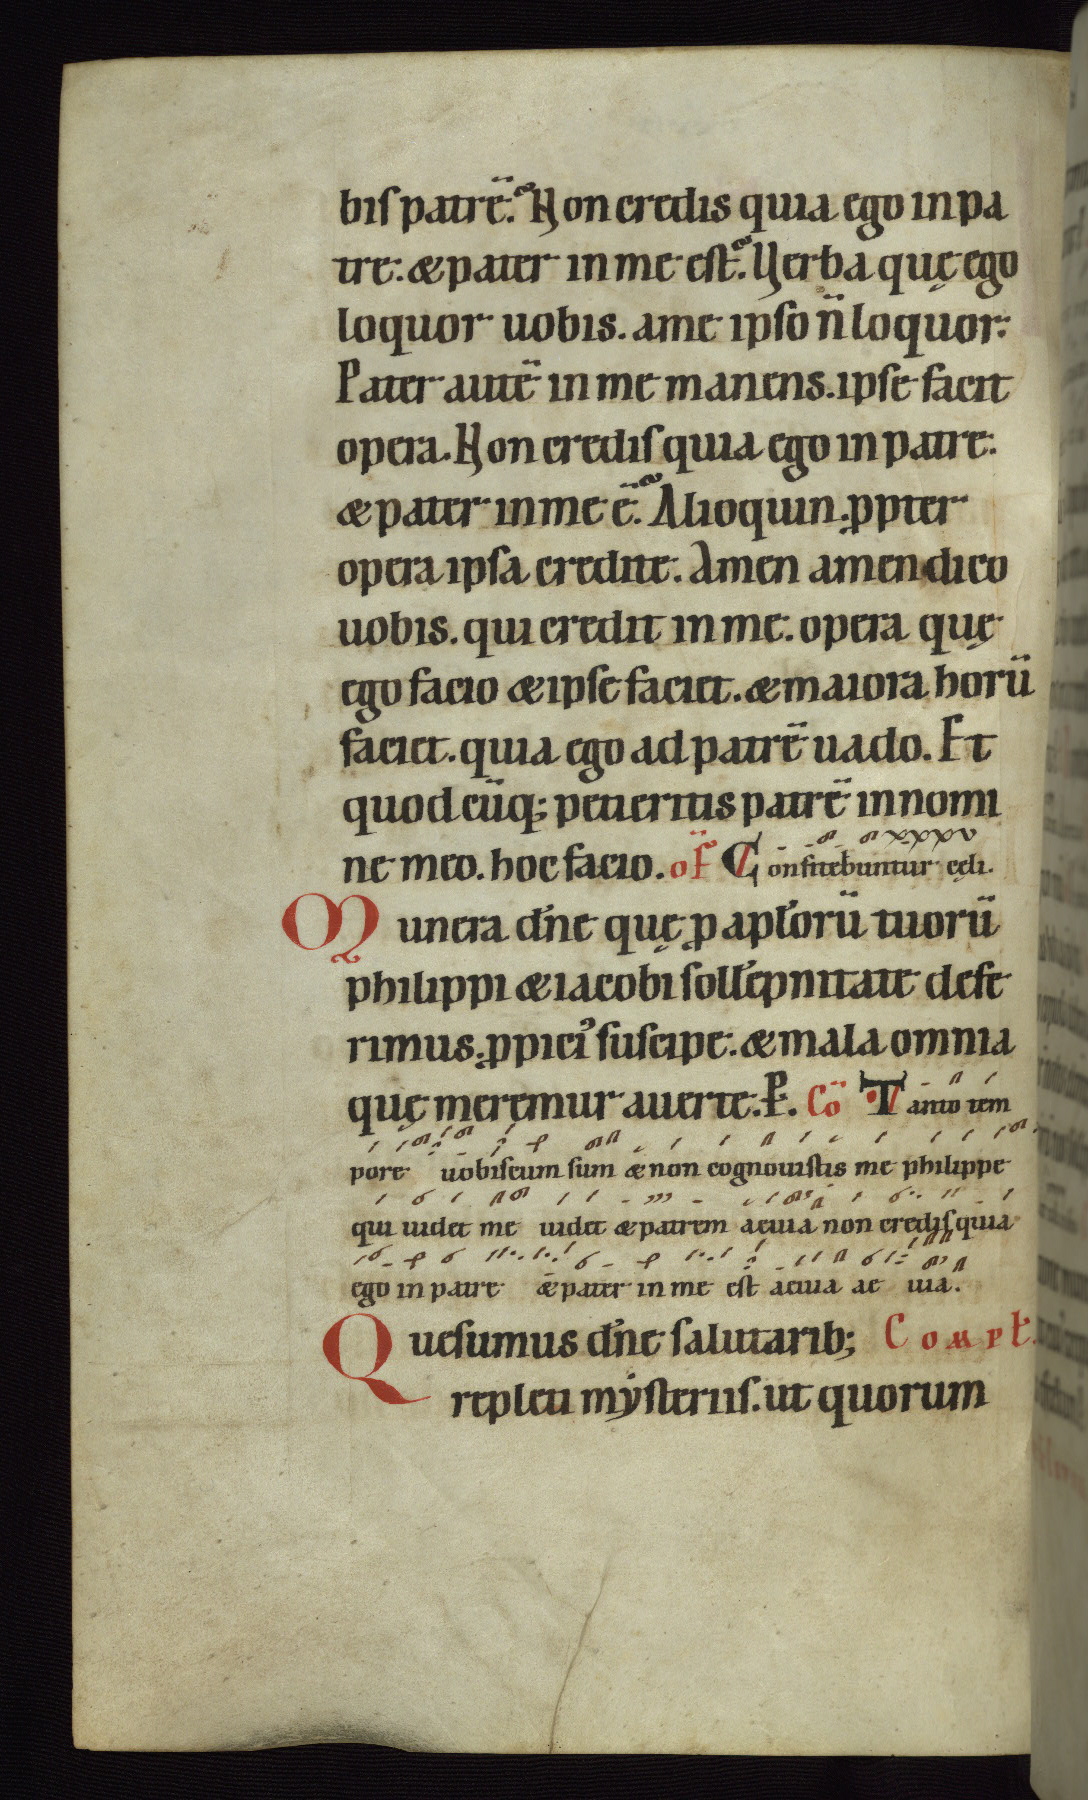 bis patrē. Non credis quia ego in pa
tre. & pater in me est. Verba quę ego
loquor uobis. a me ipso n̄ loquor.
Pater autē in me manens. ipse facit
opera. Non credis quia ego in patre.
& pater in me ē. Alioquin ꝓpter
opera ipsa credite. Amen amen dico
uobis. qui credit in me. opera quę
ego facio & ipse faciet. & maiora horū
faciet. quia ego ad patrē uado. Et
quodcūq; petieritis patrē in nomi
ne meo. hoc facio. of̄ Confitebuntur cęli.
Munera dn̄e quę ꝓ apl̄orū tuorū
philippi & iacobi soll̄epnitate defe
rimus. ꝓpici᾽ suscipe. & mala omnia
quę meremur auerte. P. Cō Tanto tem
pore uobiscum sum & non cognouistis me philippe
qui uidet me uidet & patrem aeuia non credis quia
ego in patre & pater in me est aeuia ae uia.
Quesumus dn̄e salutarib; Compl̄.
repleti mẏsteriis. ut quorum